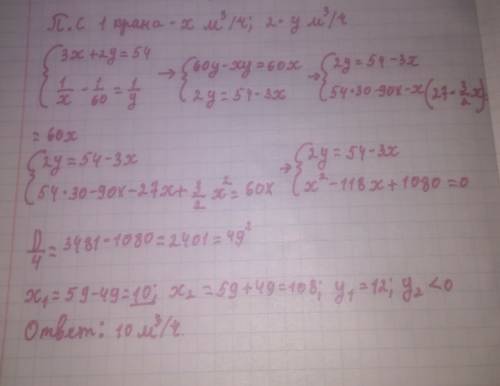 П.С 1 крана - x м³/ч; 2 - y м³/ч
{3x+2y=54
{1/x - 1/60 = 1/y → {60y-xy=60x {2y=54-3x → {2y=54-3x {54*30-90x-x(27-3/2x)
= 60x
{2y=54-3x
{54*30-90x-27x+3/2x²=60x → {2y=54-3x {x²-118x+1080=0
D/4=3481-1080=2401=49²
x₁=59-49=10; x₂=59+49=108; y₁=12; y₂<0
Ответ: 10 м³/ч.